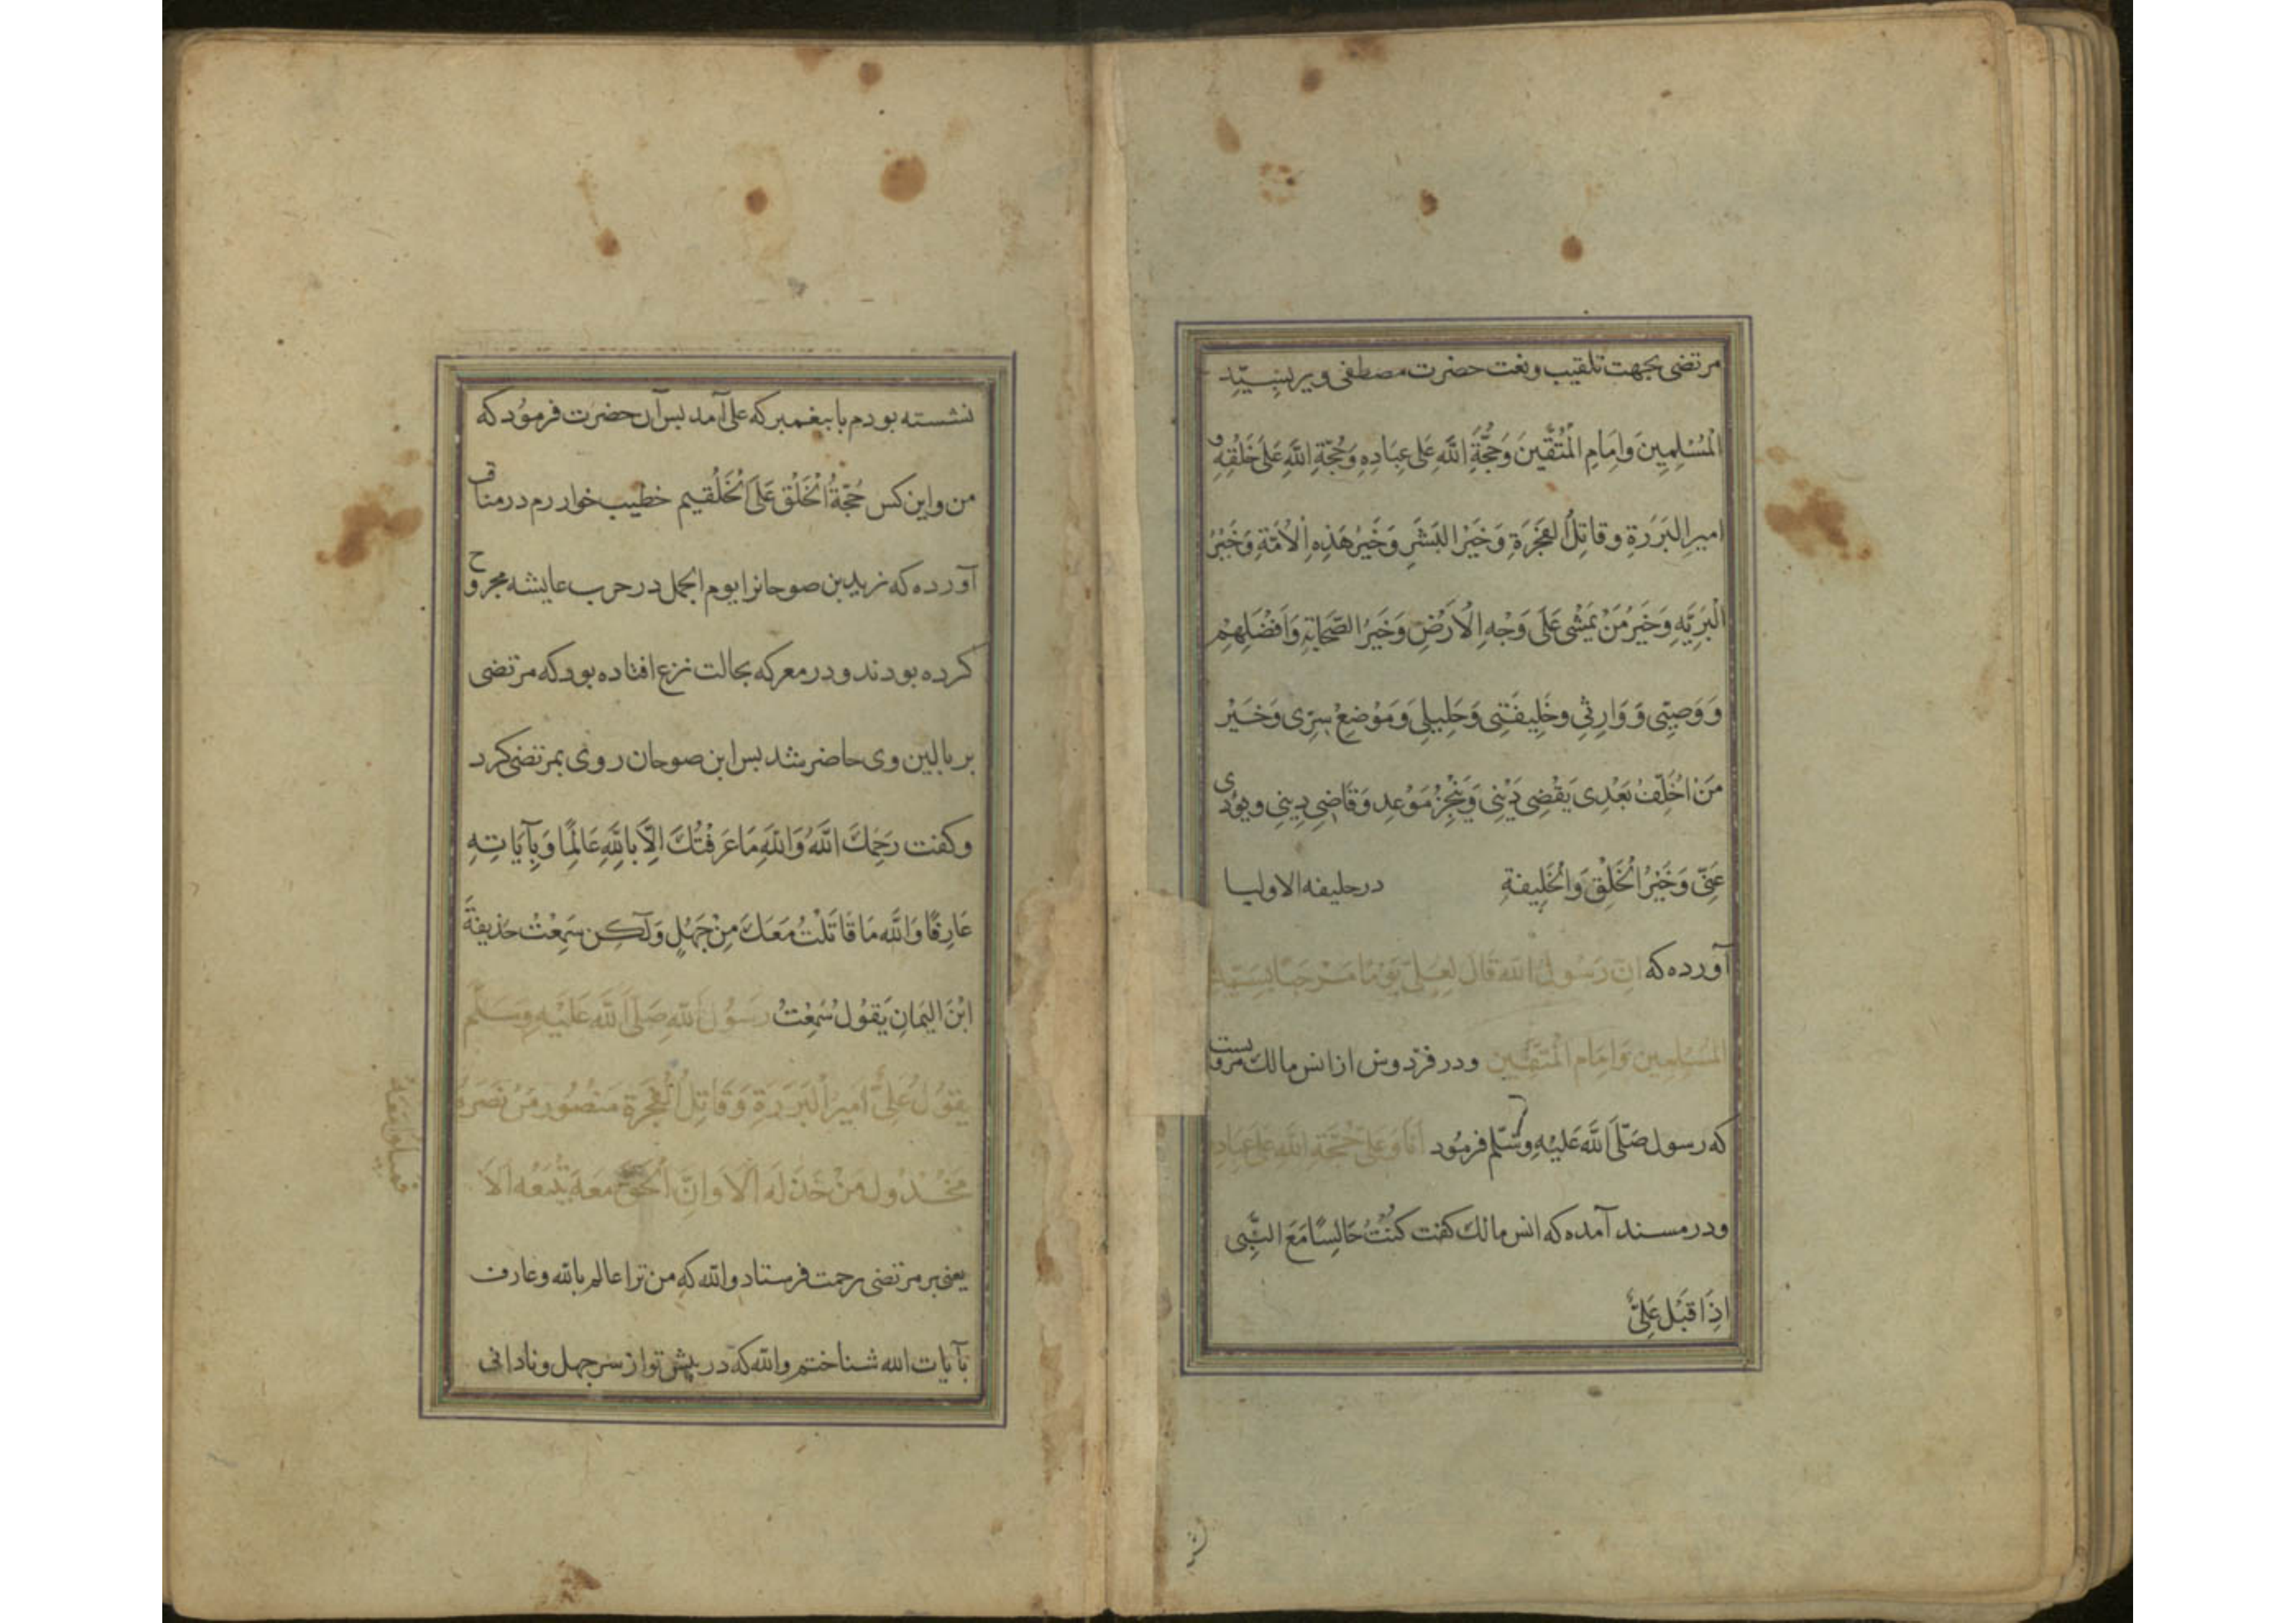 مرتضی بجهت تلقیب و نعت حضرت مصطفی ویرا بسیّدِ
الْمُسْلِمِینَ وَاِمَامِ الْمُتَّقِینَ وَحُجَّةُ اللّٰهِ عَلی عِبَادِهِ وَحُجَّةِ اللّٰهِ عَلَی خَلْقِهِ وَ
امیرِ البَرَرَةِ وقاتِلُ الفَجَرَةِ وَخَیْرُ البَشَرِ وَخَیْرُ هٰذِهِ الْاُمَّةِ وَخَیْرُ
الْبَرِیَّهِ وَخَیْرُ مَنْ یَمْشی عَلَی وَجْهِ الْاَرْضِ وَخَیْرُ الصَّحَابَةِ وَاَفْضَلِهِمْ
وَ وَصِیّی وَ وَارِثی وخَلِیفَتِی وَخَلِیلِی وَمَوْضِعْ سِرِّی وَخَیْر
مَنْ اُخَلِّفُ بَعْدِی یَقْضِی دَیْنی وَیُنْجِزُ مَوْعِدِ وَقَاضِی دِینی ویؤدی
عَنّی وَخَیْرُ الْخَلْقِ وَالْخَلِیفَةِ در حلیفه الاولیا
آورده که اِنّ رَسُولَ اللّٰه قَالَ لِعِلیّ یَوْمًا مَرْحَبًا بِسَیِّدِ
المُسْلِمِینَ وَاِمَامِ الْمُتَّقِینَ ودر فردوس از انس مالک مرویست
که رسول صَلّی اللّٰه عَلَیْهِ وسَلّم فرمُود اَنَا وَعَلیّ حُجَّةِ اللّٰهِ عَلی عِبَادِهِ
ودر مسند آمده که انس مالک گفت کُنْتُ جَالِسًا مَعَ النّبِی
اِذَا قبَل عَلِیٌّ
نشسته بودم با پیغمبر که علی آمد پس آن حضرت فرمُود که
من واین کس حُجّةُ الْخَلْق عَلَی الْخَلْقیم خطیب خوارزم در مناقب
آورده که زید بن صوحانرا یوم الجمل در حرب عایشه مجروح
کرده بودند و در معرکه بحالت نزع افتاده بود که مرتضی
بر بالین وی حاضر شد پس ابن صوحان روی بمرتضی کرد
وگفت رَحِمَكَ اللّٰهُ وَاللّٰهِ مَا عَرَفْتُكَ اِلّا بِاللّٰهِ عَالِمًا وَبِآیَاتِهِ
عَارِفًا وَاللّٰهِ مَا قَاتَلْتُ مَعَكَ مِنْ جَهْلٍ وَلٰکِن سَمِعْتُ حُذَیفَةَ
ابْنَ الیَمَانِ یَقُولُ سَمِعْتُ رَسُولَ اللّٰهِ صَلَّی اللّٰهَ عَلَیْهِ وَسَلَّم
یقُولُ عَلِیٌّ اَمیرُ الْبَرَرَةِ وَقَاتِلُ الْفَجَرَةِ مَنْصُور مَنْ نَصَرَهُ
مَخْذُول مَنْ خَذَلَه اَلَا وَاِنَّ الْحَقَّ مَعَهُ یَتْبَعُه اَلَا
فمیلوا مَعَهُ
یعنی بر مرتضی رحمت فرستاد واللّٰه که من ترا عالم باللّٰه وعارف
بآیات اللّٰه شناختم واللّٰه که در پیش تو از سر جهل ونادانی